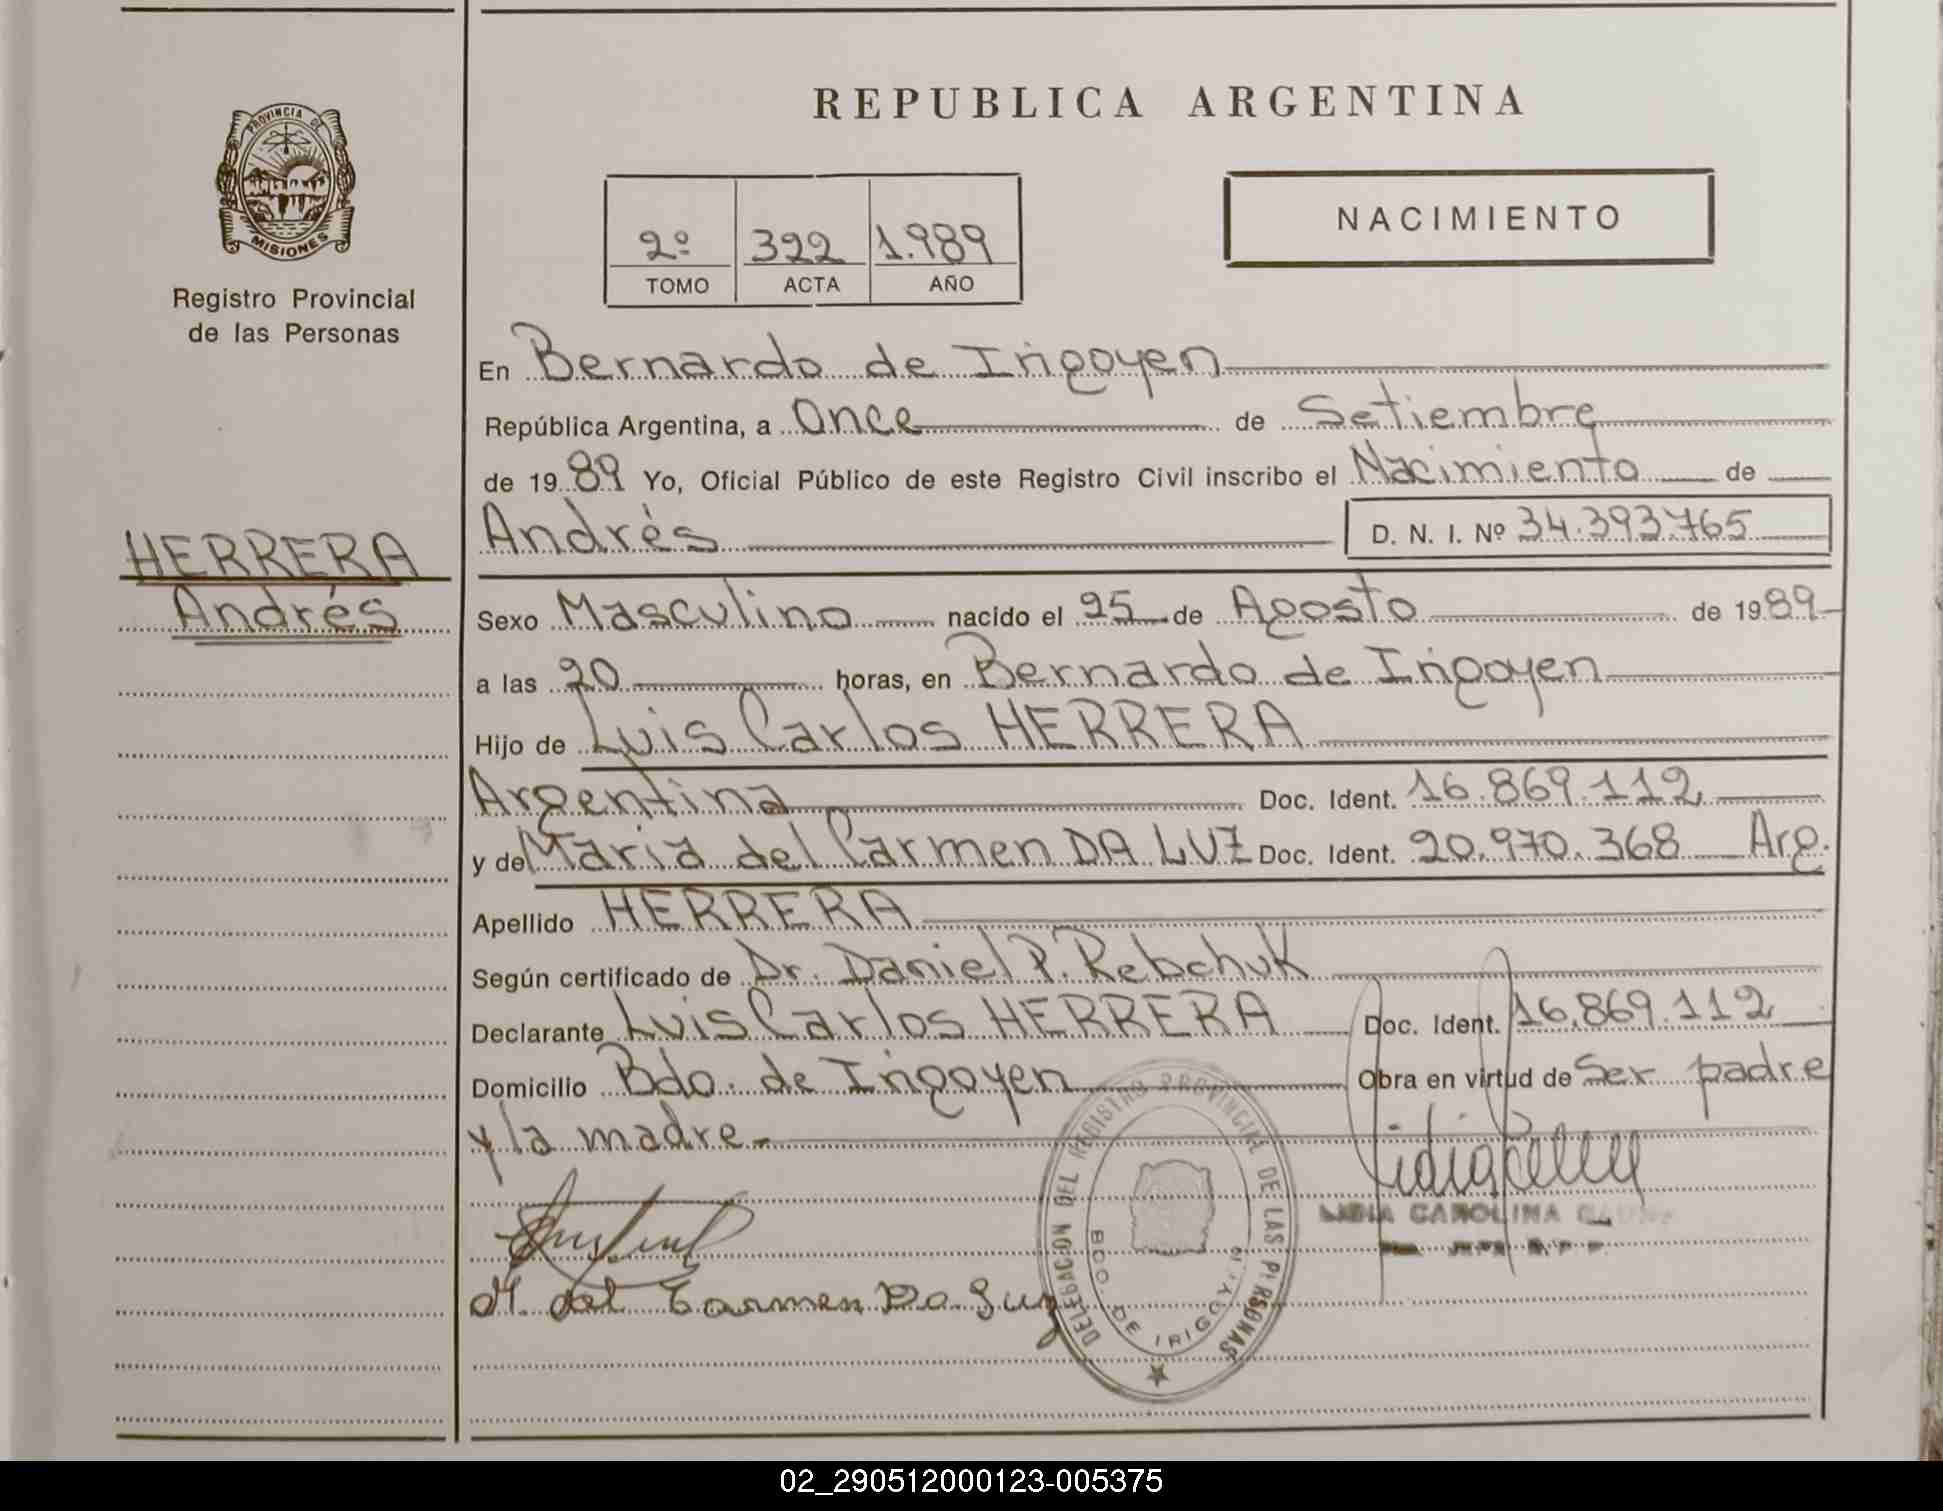 REPUBLICA ARGENTINA
PROVINCIA DE
MISIONES
Registro Provincial
de las Personas
2º 322 1.989
TOMO ACTA AÑO
NACIMIENTO
En Bernardo de Irigoyen
República Argentina, a Once de Setiembre
de 1989 Yo, Oficial Público de este Registro Civil inscribo el Nacimiento de
Andrés D. N. I. Nº 34.393.765
HERRERA
Andrés
Sexo Masculino nacido el 25 de Agosto de 1989
a las 20 horas, en Bernardo de Irigoyen
Hijo de Luis Carlos HERRERA
Argentina Doc. Ident. 16.869.112
y de Maria del Carmen DA LUZ Doc. Ident. 20.970.368 Arg.
Apellido HERRERA
Según certificado de Dr. Daniel P. Rebchuk
Declarante Luis Carlos HERRERA Doc. Ident. 16.869.112
Domicilio Bdo. de Irigoyen Obra en virtud de Ser padre
y la madre.-
LIDIA CAROLINA
M. del Carmen Da Luz
DELEGACION DEL REGISTRO PROVINCIAL DE LAS PERSONAS
BDO DE IRIGOYEN
02_290512000123-005375